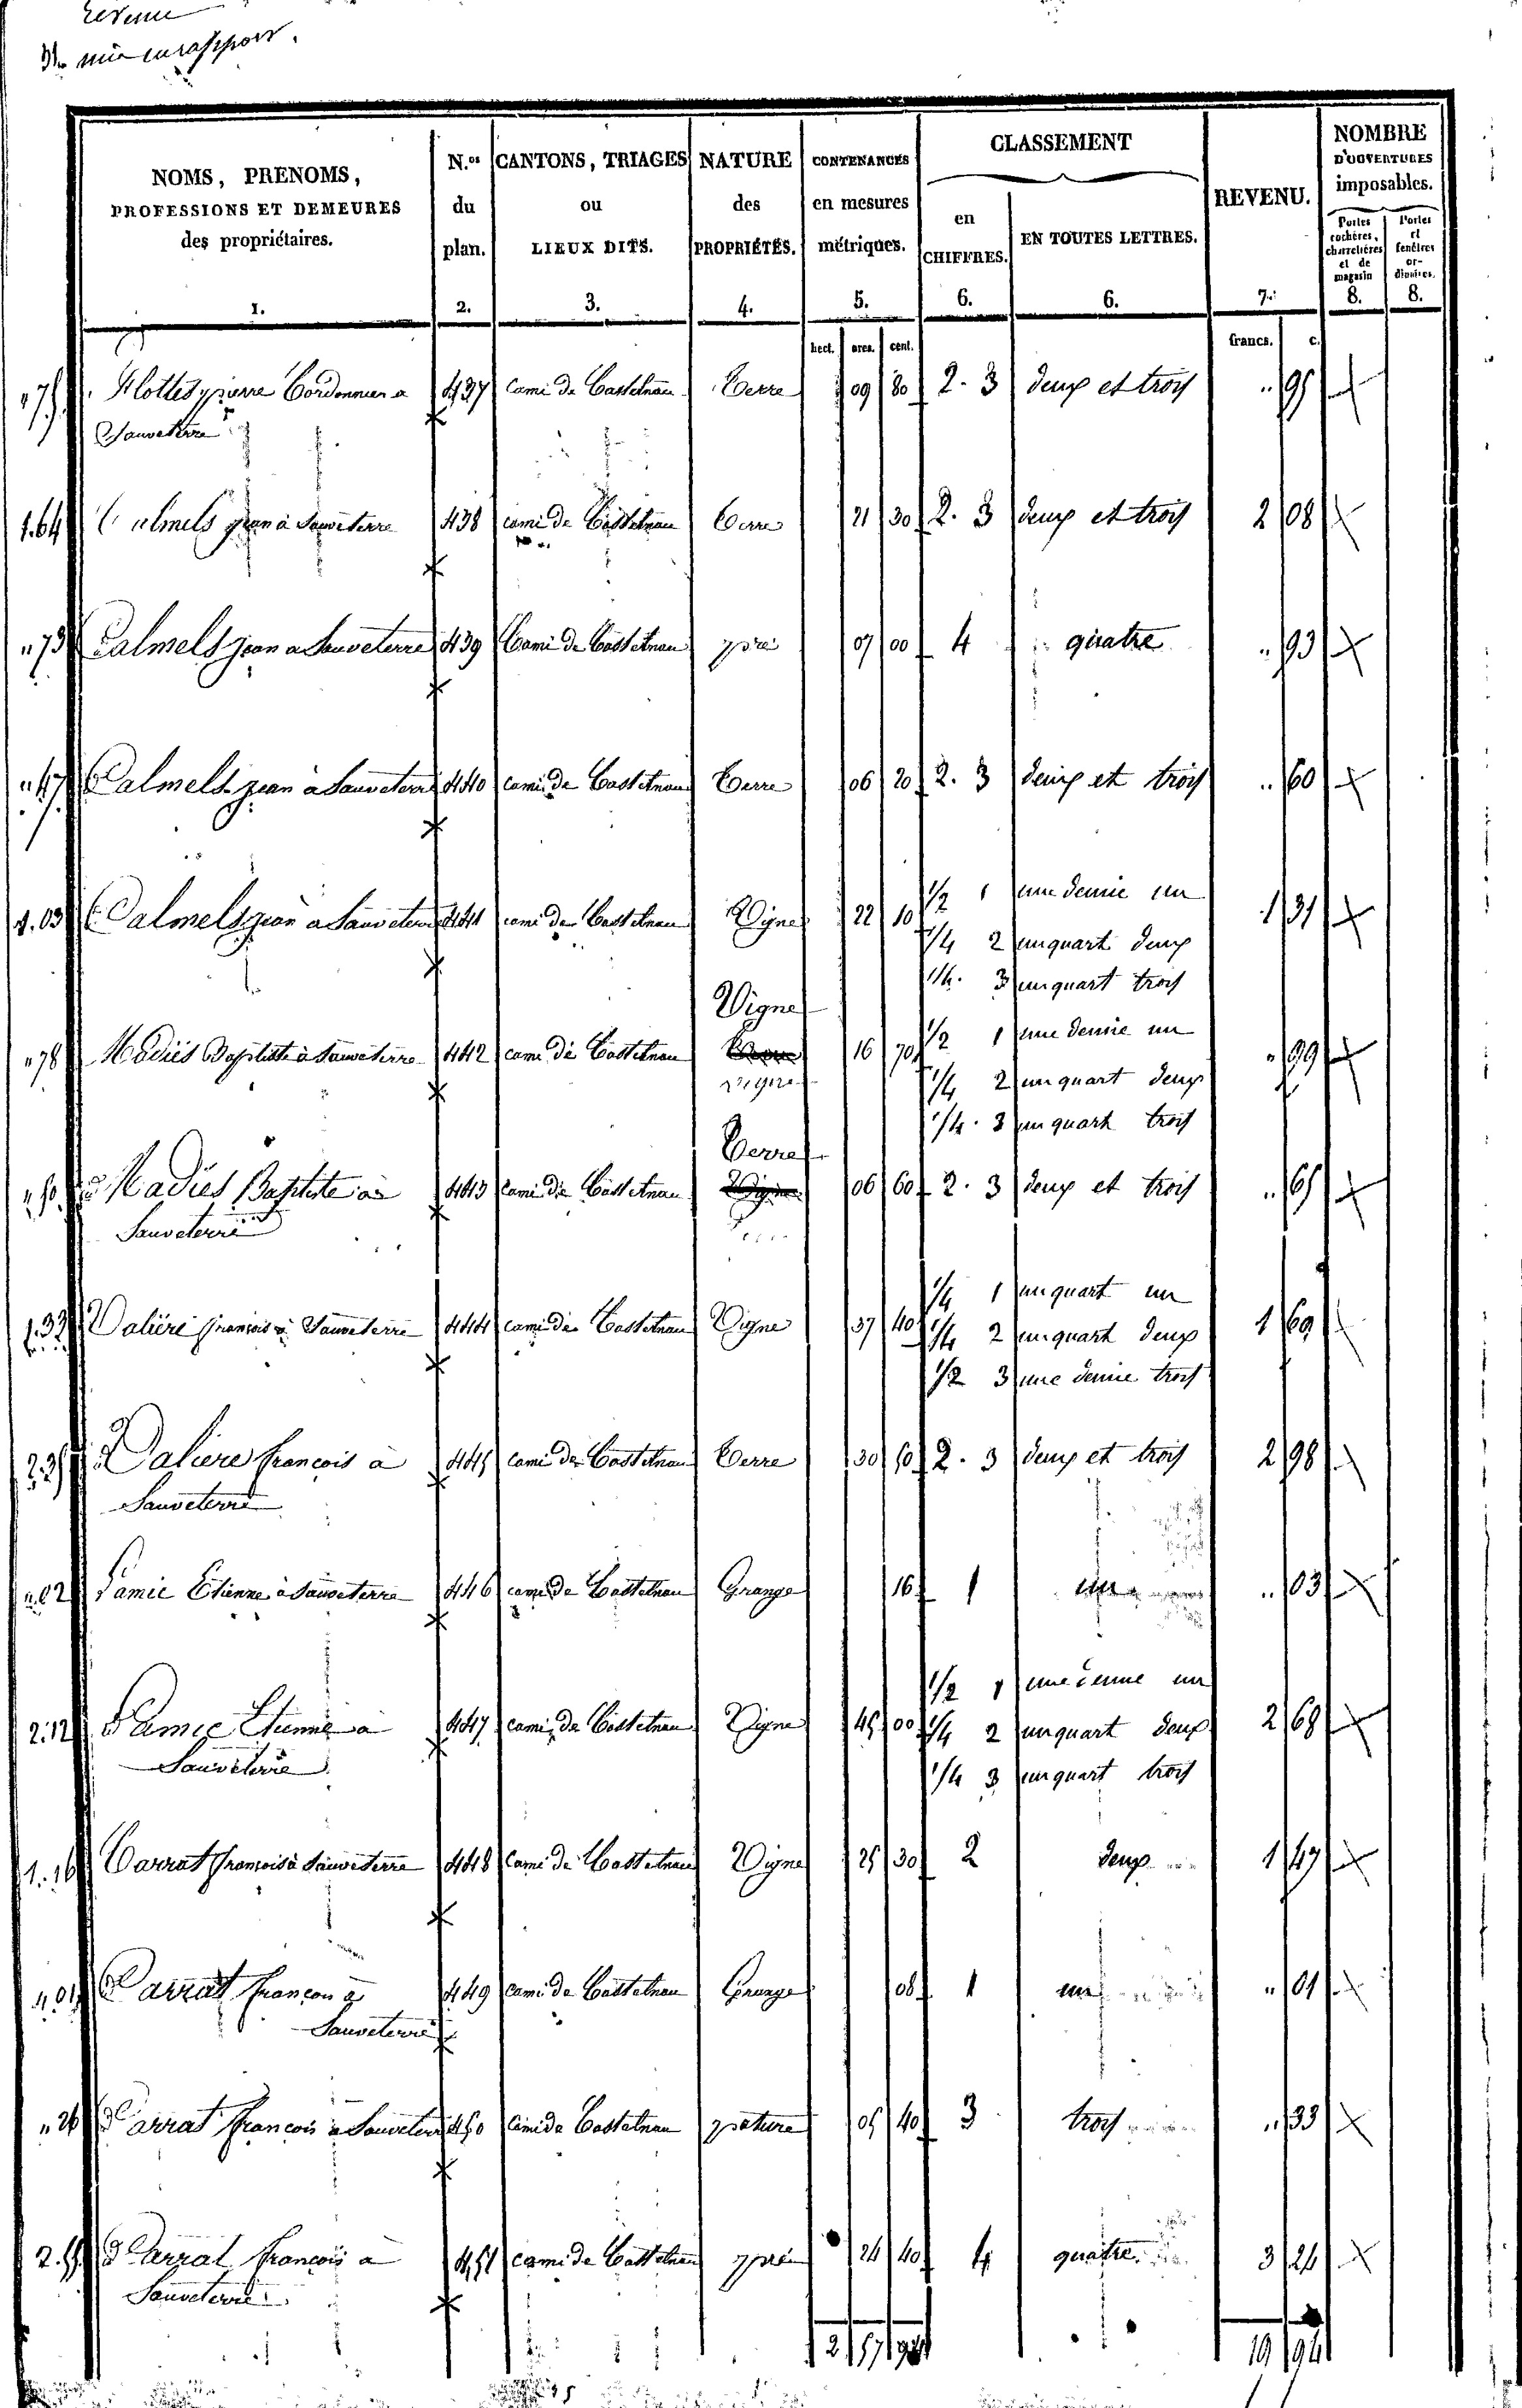 revenu
NOMS, PRENOMS, PROFESSIONS ET DEMEURES des propriétaires. 1.
N.os du plan. 2.
CANTONS, TRIAGES ou LIEUX DITS. 3.
NATURE des PROPRIÉTÉS. 4.
CONTENANCES en mesures métriques. 5.
CLASSEMENT
en CHIFFRES. 6.
EN TOUTES LETTRES. 6.
REVENU. 7.
NOMBRE D'OUVERTURES imposables.
Portes cochères, charretières et de magasin 8.
Portes et fenêtres ordinaires. 8.
hect. ares. cent. francs. c.
pierre Cordonnier a 437 cami de Castelnau Terre 09 80 2. 3 deux et trois .. 95
Sauveterre
1.64 Calmels jean à Sauveterre 438 cami de Castelnau Terre 21 30 2. 3 deux et trois 2 08
"73 Calmels jean a Sauveterre 439 Cami de Castelnau pré 07 00 4 quatre .. 93
"47 Calmels jean à Sauveterre 440 cami de Castelnau Terre 06 20 2. 3 deux et trois .. 60
1.03 Calmels jean a Sauveterre 441 cami de Castelnau Vigne 22 10 1/2 1 une demie un 1 31
1/4 2 un quart deux
1/4. 3 un quart trois
Vigne
"78 Baptiste à Sauveterre 442 cami de Castelnau vigne 16 70 1/2 1 une demie un .. 99
1/4 2 un quart deux
1/4. 3 un quart trois
Terre
Baptiste a 443 Cami de Castelnau 06 60 2. 3 deux et trois .. 65
Sauveterre
1/4 1 un quart un
1.33 Daliere françois à Sauveterre 444 cami de Castelnau Vigne 37 40 1/4 2 un quart deux 1 69
1/2 3 une demie trois
Daliere francois à 445 cami de Castelnau Terre 30 50 2. 3 deux et trois 2 98
Sauveterre
"02 Etienne à Sauveterre 446 cami de Castelnau Grange 16 1 .. 03
1/2 1 une demie un
2.12 Etienne à 447 cami de Castelnau Vigne 45 00 1/4 2 un quart deux 2 68
Sauveterre
1/4 3 un quart trois
1.16 Carrat françois à Sauveterre 448 Cami de Castelnau Vigne 25 30 2 deux 1 47
"01 Carrat françois a 449 Cami de Castelnau Grange 08 1 une " 01
Sauveterre
"26 Carrat francois a Sauveterre 450 Cami de Castelnau pature 05 40 3 trois .. 33
2.55 Carrat francois a 451 cami de Castelnau pré 24 40 4 quatre 3 24
Sauveterre
2 57 94 19 94